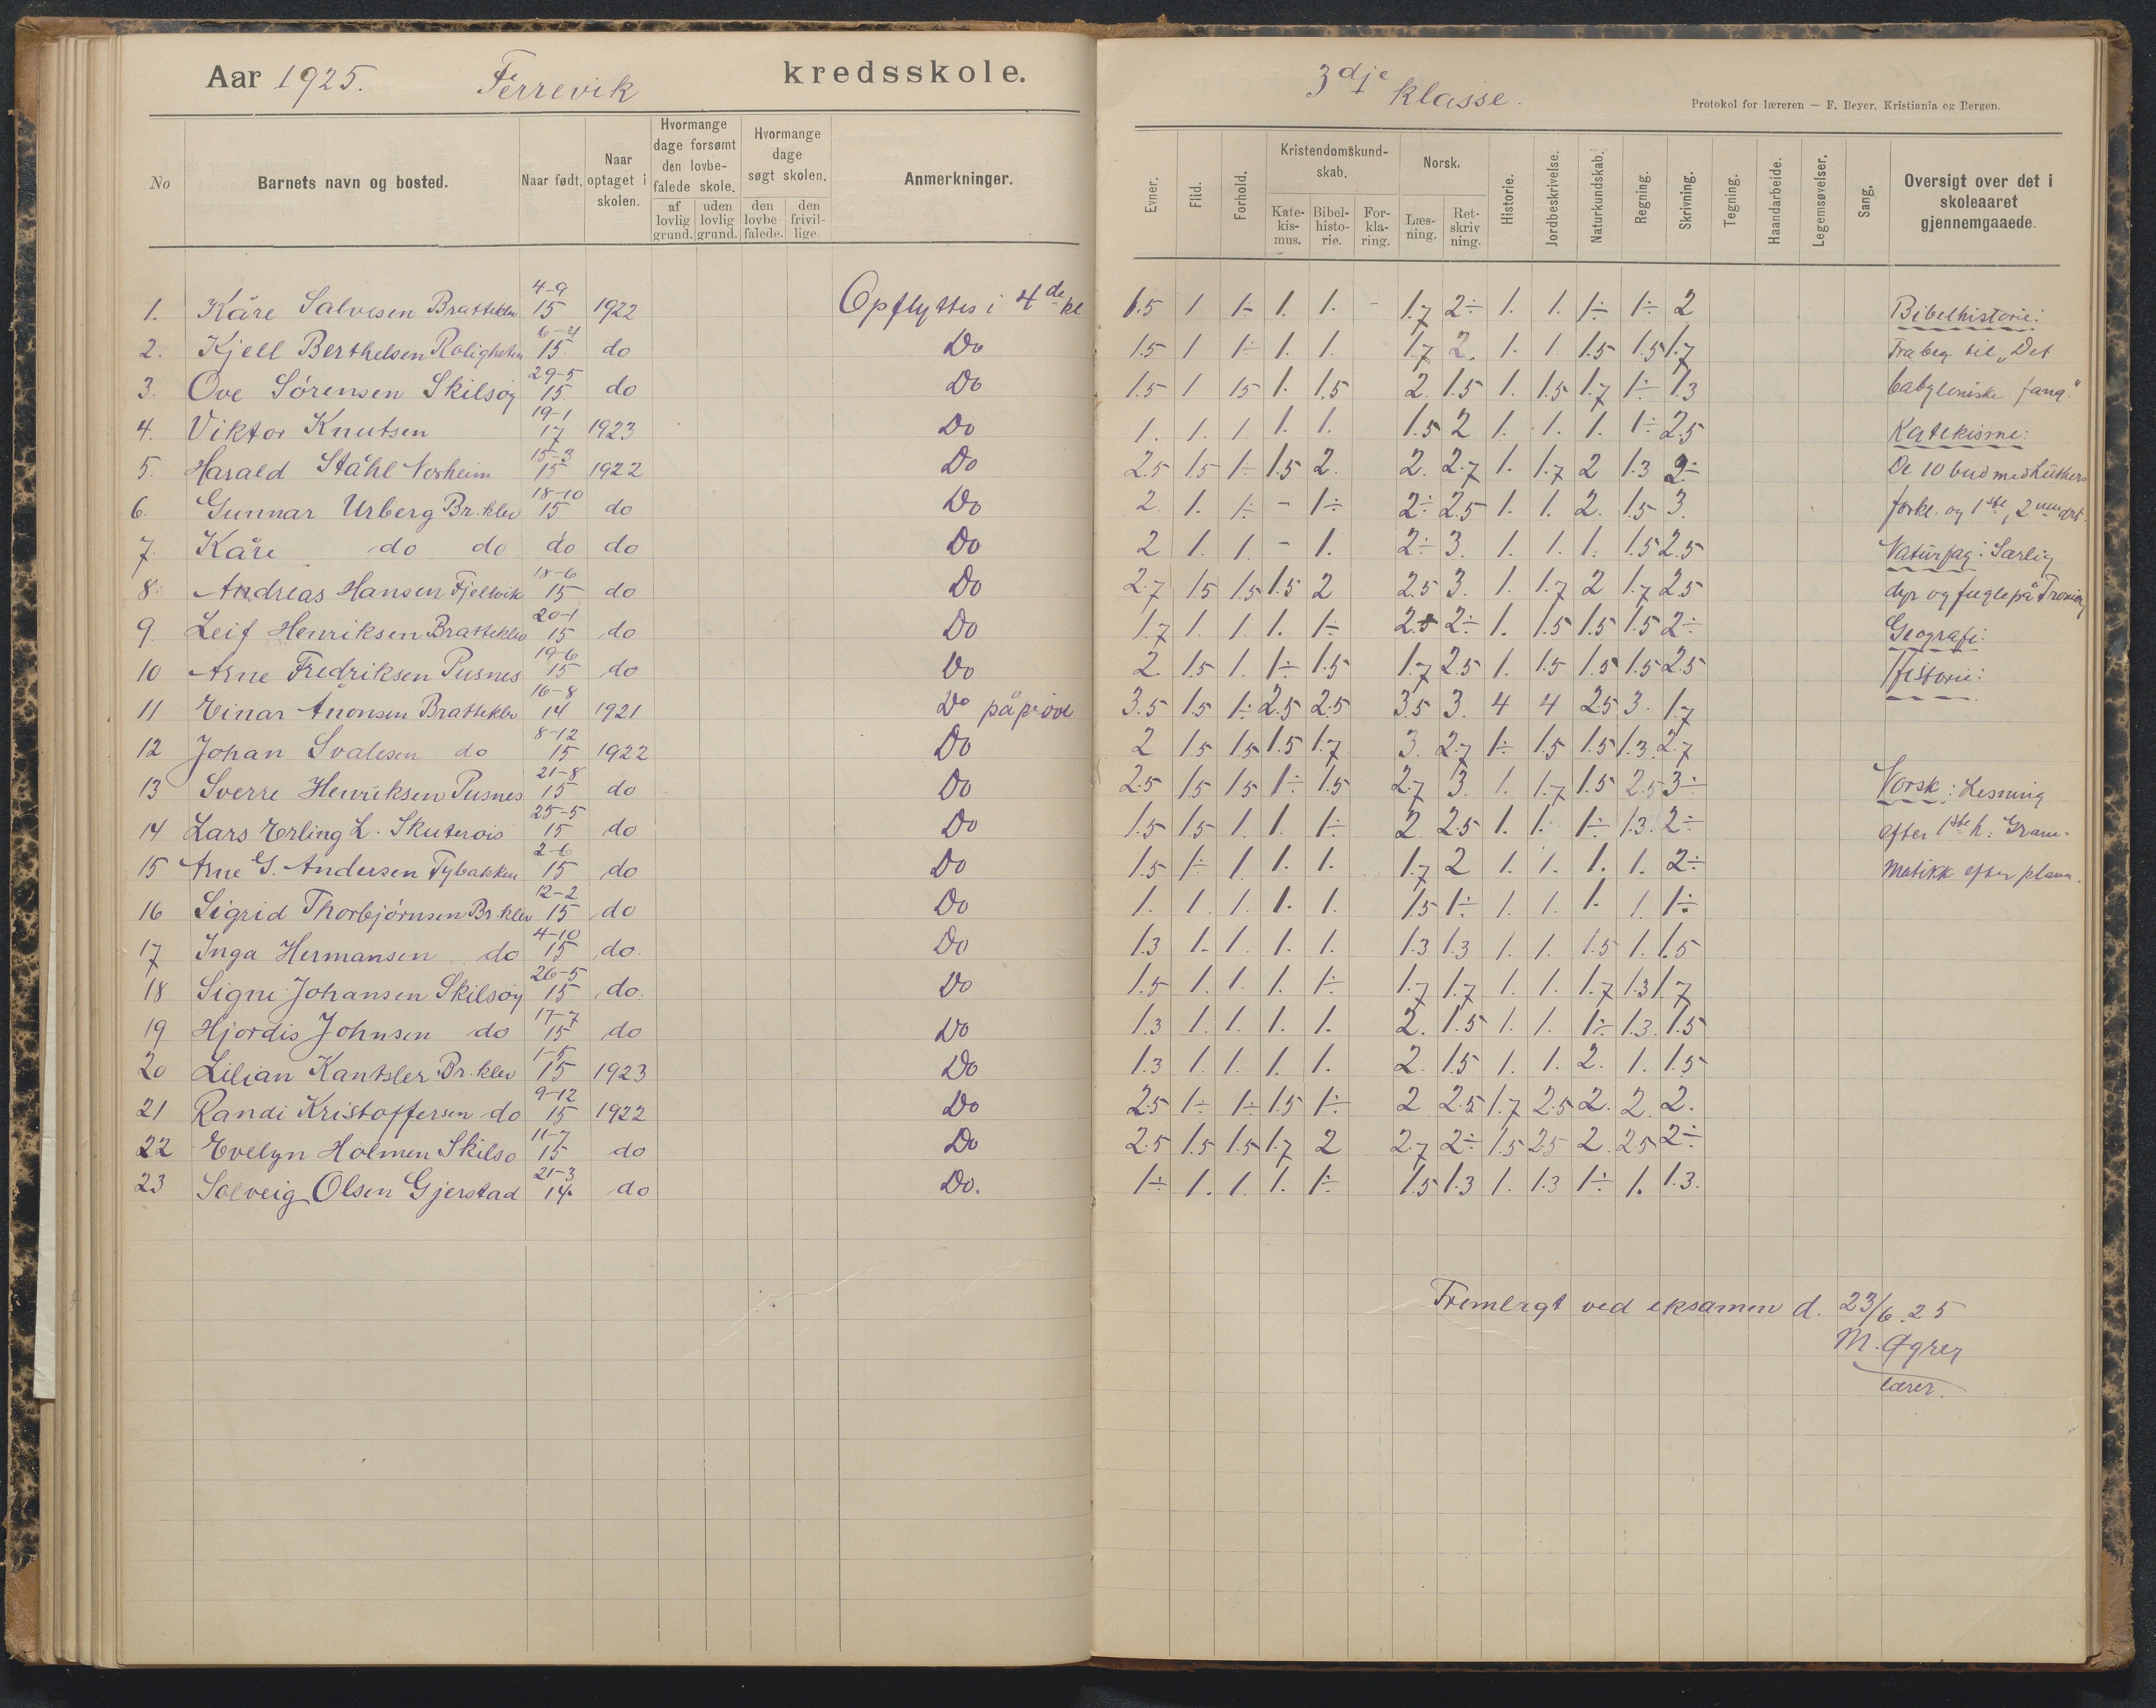 Aar 1925. Færevik kredsskole.
3dje klasse.
Protokol for læreren — F. Beyer, Kristiania og Bergen.
No Barnets navn og bosted. Naar født. Naar optaget i skolen. Hvormange dage forsømt den lovbefalede skole. af lovlig grund. uden lovlig grund. Hvormange dage søgt skolen. den lovbefalede. den frivillige. Anmerkninger.
Evner. Flid. Forhold. Kristendomskundskab. Katekismus. Bibelhistorie. Forklaring. Norsk. Læsning. Retskrivning. Historie. Jordbeskrivelse. Naturkundskab. Regning. Skrivning. Tegning. Haandarbeide. Legemsøvelser. Sang. Oversigt over det i skoleaaret gjennemgaaede.
1. Kåre Salvesen Bratteklev 4-9 15 1922 Opflyttes i 4de kl 1.5 1 1÷ 1. 1. - 1.7 2÷ 1. 1. 1÷ 1÷ 2 Bibelhistorie:
2. Kjell Berthelsen Roligheten 6-4 15 do Do 1.5 1 1÷ 1. 1. 1.7 2. 1. 1. 1.5 1.5 1.7 Fra beg. til „Det
3. Ove Sørensen Skilsøy 29-5 15 do Do 1.5 1 15 1. 1.5 2. 1.5 1. 1.5 1.7 1÷ 1.3 babyloniske fang."
4. Viktor Knutsen 19-1 17 1923 Do 1. 1. 1 1. 1. 1.5 2 1. 1. 1. 1÷ 2.5 Katekisme:
5. Harald Ståhl Nesheim 15-3 15 1922 Do 2.5 1.5 1÷ 1.5 2. 2. 2.7 1. 1.7 2 1.3 2÷ De 10 bud med Luthers
6. Gunnar Urberg Br.klev 18-10 15 do Do 2. 1. 1÷ - 1÷ 2÷ 2.5 1. 1. 2. 1.5 3. forkl. og 1ste, 2nen art.
7. Kåre do do do do Do 2 1. 1. - 1. 2÷ 3. 1. 1. 1. 1.5 2.5 Naturfag: Særlig
8. Andreas Hansen Fjellvik 18-6 15 do Do 2.7 1.5 1.5 1.5 2 2.5 3. 1. 1.7 2 1.7 2.5 dyr og fugle på
9. Leif Henriksen Bratteklev 20-1 15 do Do 1.7 1. 1. 1. 1÷ 2.5 2÷ 1. 1.5 1.5 1.5 2÷ Geografi:
10 Arne Fredriksen Pusnes 19-6 15 do Do 2. 1.5 1. 1÷ 1.5 1.7 2.5 1. 1.5 1.5 1.5 2.5 Historie:
11 Einar Anonsen Bratteklev 16-8 14 1921 Do på prøve 3.5 1.5 1÷ 2.5 2.5 3.5 3. 4 4 2.5 3. 1.7
12 Johan Svalesen do 8-12 15 1922 Do 2 1.5 1.5 1.5 1.7 3. 2.7 1÷ 1.5 1.5 1.3 2.7
13 Sverre Henriksen Pusnes 21-8 15 do Do 2.5 1.5 1.5 1÷ 1.5 2.7 3. 1. 1.7 1.5 2.5 3÷ Norsk: Lesning
14 Lars Erling L. 25-5 15 do Do 1.5 1.5 1. 1. 1÷ 2 2.5 1. 1. 1÷ 1.3. 2÷ efter 1ste h. Gram-
15 Arne G. Andersen Tybakken 2-6 15 do Do 1.5 1÷ 1 1. 1. 1.7 2 1. 1. 1. 1. 2÷ matikk efter plann.
16 Sigrid Thorbjørnsen Br.klev 12-2 15 do Do 1. 1. 1. 1. 1. 1.5 1÷ 1. 1. 1. 1. 1÷
17 Inga Hermansen do 4-10 15 do. Do 1.3 1. 1. 1. 1. 1.3 1.3 1. 1. 1.5 1. 1.5
18 Signe Johansen Skilsøy 26-5 15 do. Do 1.5 1. 1. 1. 1÷ 1.7 1.7 1. 1. 1.7 1.3 1.7
19 Hjørdis Johnsen do 17-7 15 do Do 1.3 1. 1. 1. 1. 2. 1.5 1. 1. 1÷ 1.3. 1.5
20 Lilian Kantsler Br.klev 1-5 15 1923 Do 1.3 1. 1. 1. 1. 2. 1.5 1. 1. 2. 1. 1.5
21 Randi Kristoffersen do 9-12 15 1922 Do 2.5 1÷ 1÷ 1.5 1÷ 2 2.5 1.7 2.5 2. 2. 2.
22 Evelyn Holmen Skilsø 11-7 15 do Do 2.5 1.5 1.5 1.7 2 2.7 2÷ 1.5 2.5 2 2.5 2÷
23 Solveig Olsen Gjerstad 21-3 14. do Do. 1÷ 1. 1. 1. 1÷ 1.5 1.3 1. 1.3 1÷ 1. 1.3.
Fremlagt ved eksamen d. 23/6.25
M. Øgrey
lærer.